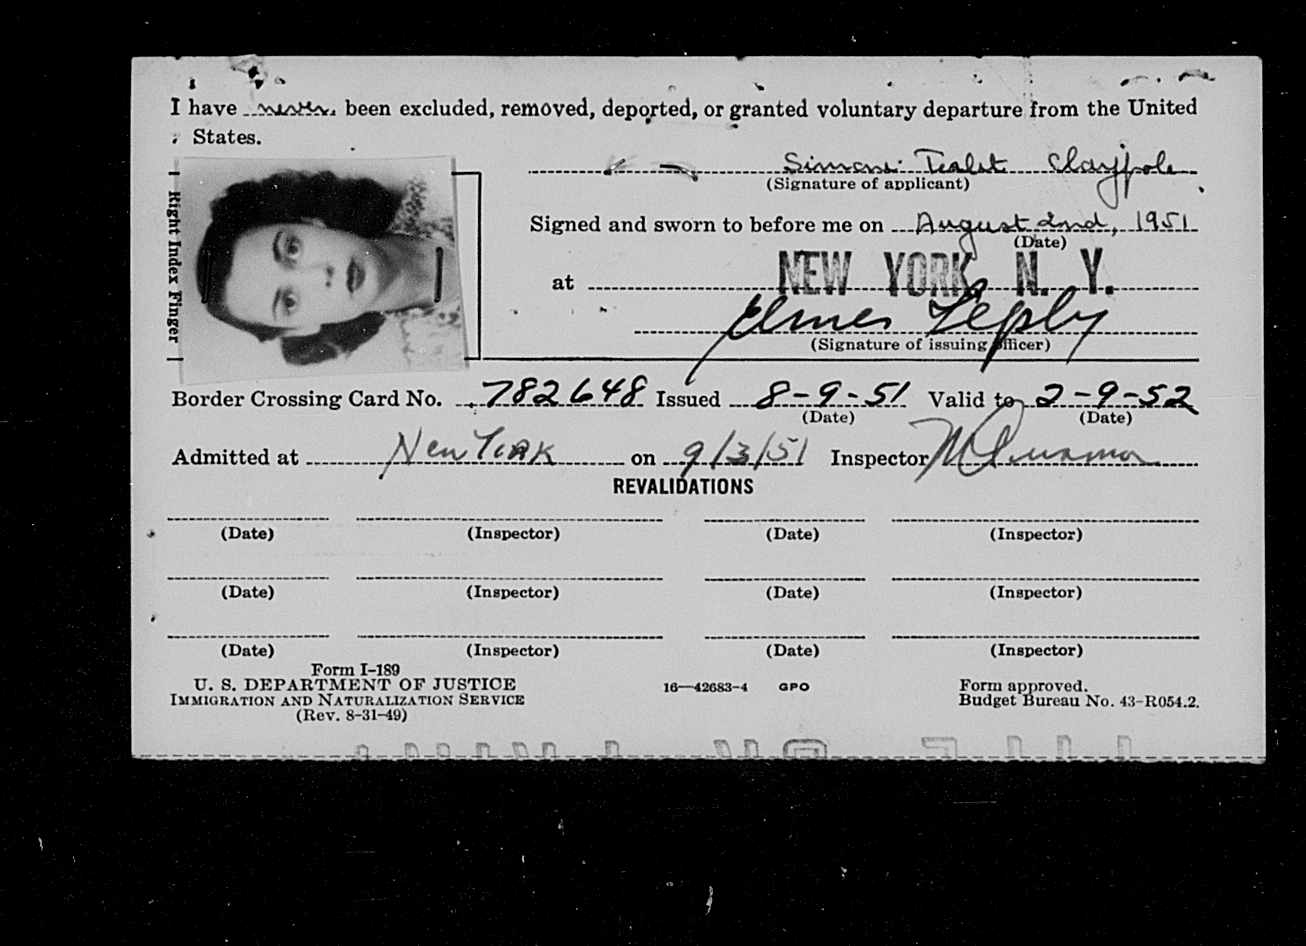 I have never been excluded, removed, deported, or granted voluntary departure from the United
States.
Right Index Finger
Simone Claypole
(Signature of applicant)
Signed and sworn to before me on August 2nd, 1951
(Date)
at NEW YORK, N. Y.
Elmer
(Signature of issuing officer)
Border Crossing Card No. 782648 Issued 8-9-51 Valid to 2-9-52
(Date) (Date)
Admitted at New York on 9/3/51 Inspector
REVALIDATIONS
(Date) (Inspector) (Date) (Inspector)
(Date) (Inspector) (Date) (Inspector)
(Date) (Inspector) (Date) (Inspector)
Form I-189
U. S. DEPARTMENT OF JUSTICE
IMMIGRATION AND NATURALIZATION SERVICE
(Rev. 8-31-49)
16—42683-4 GPO
Form approved.
Budget Bureau No. 43-R054.2.